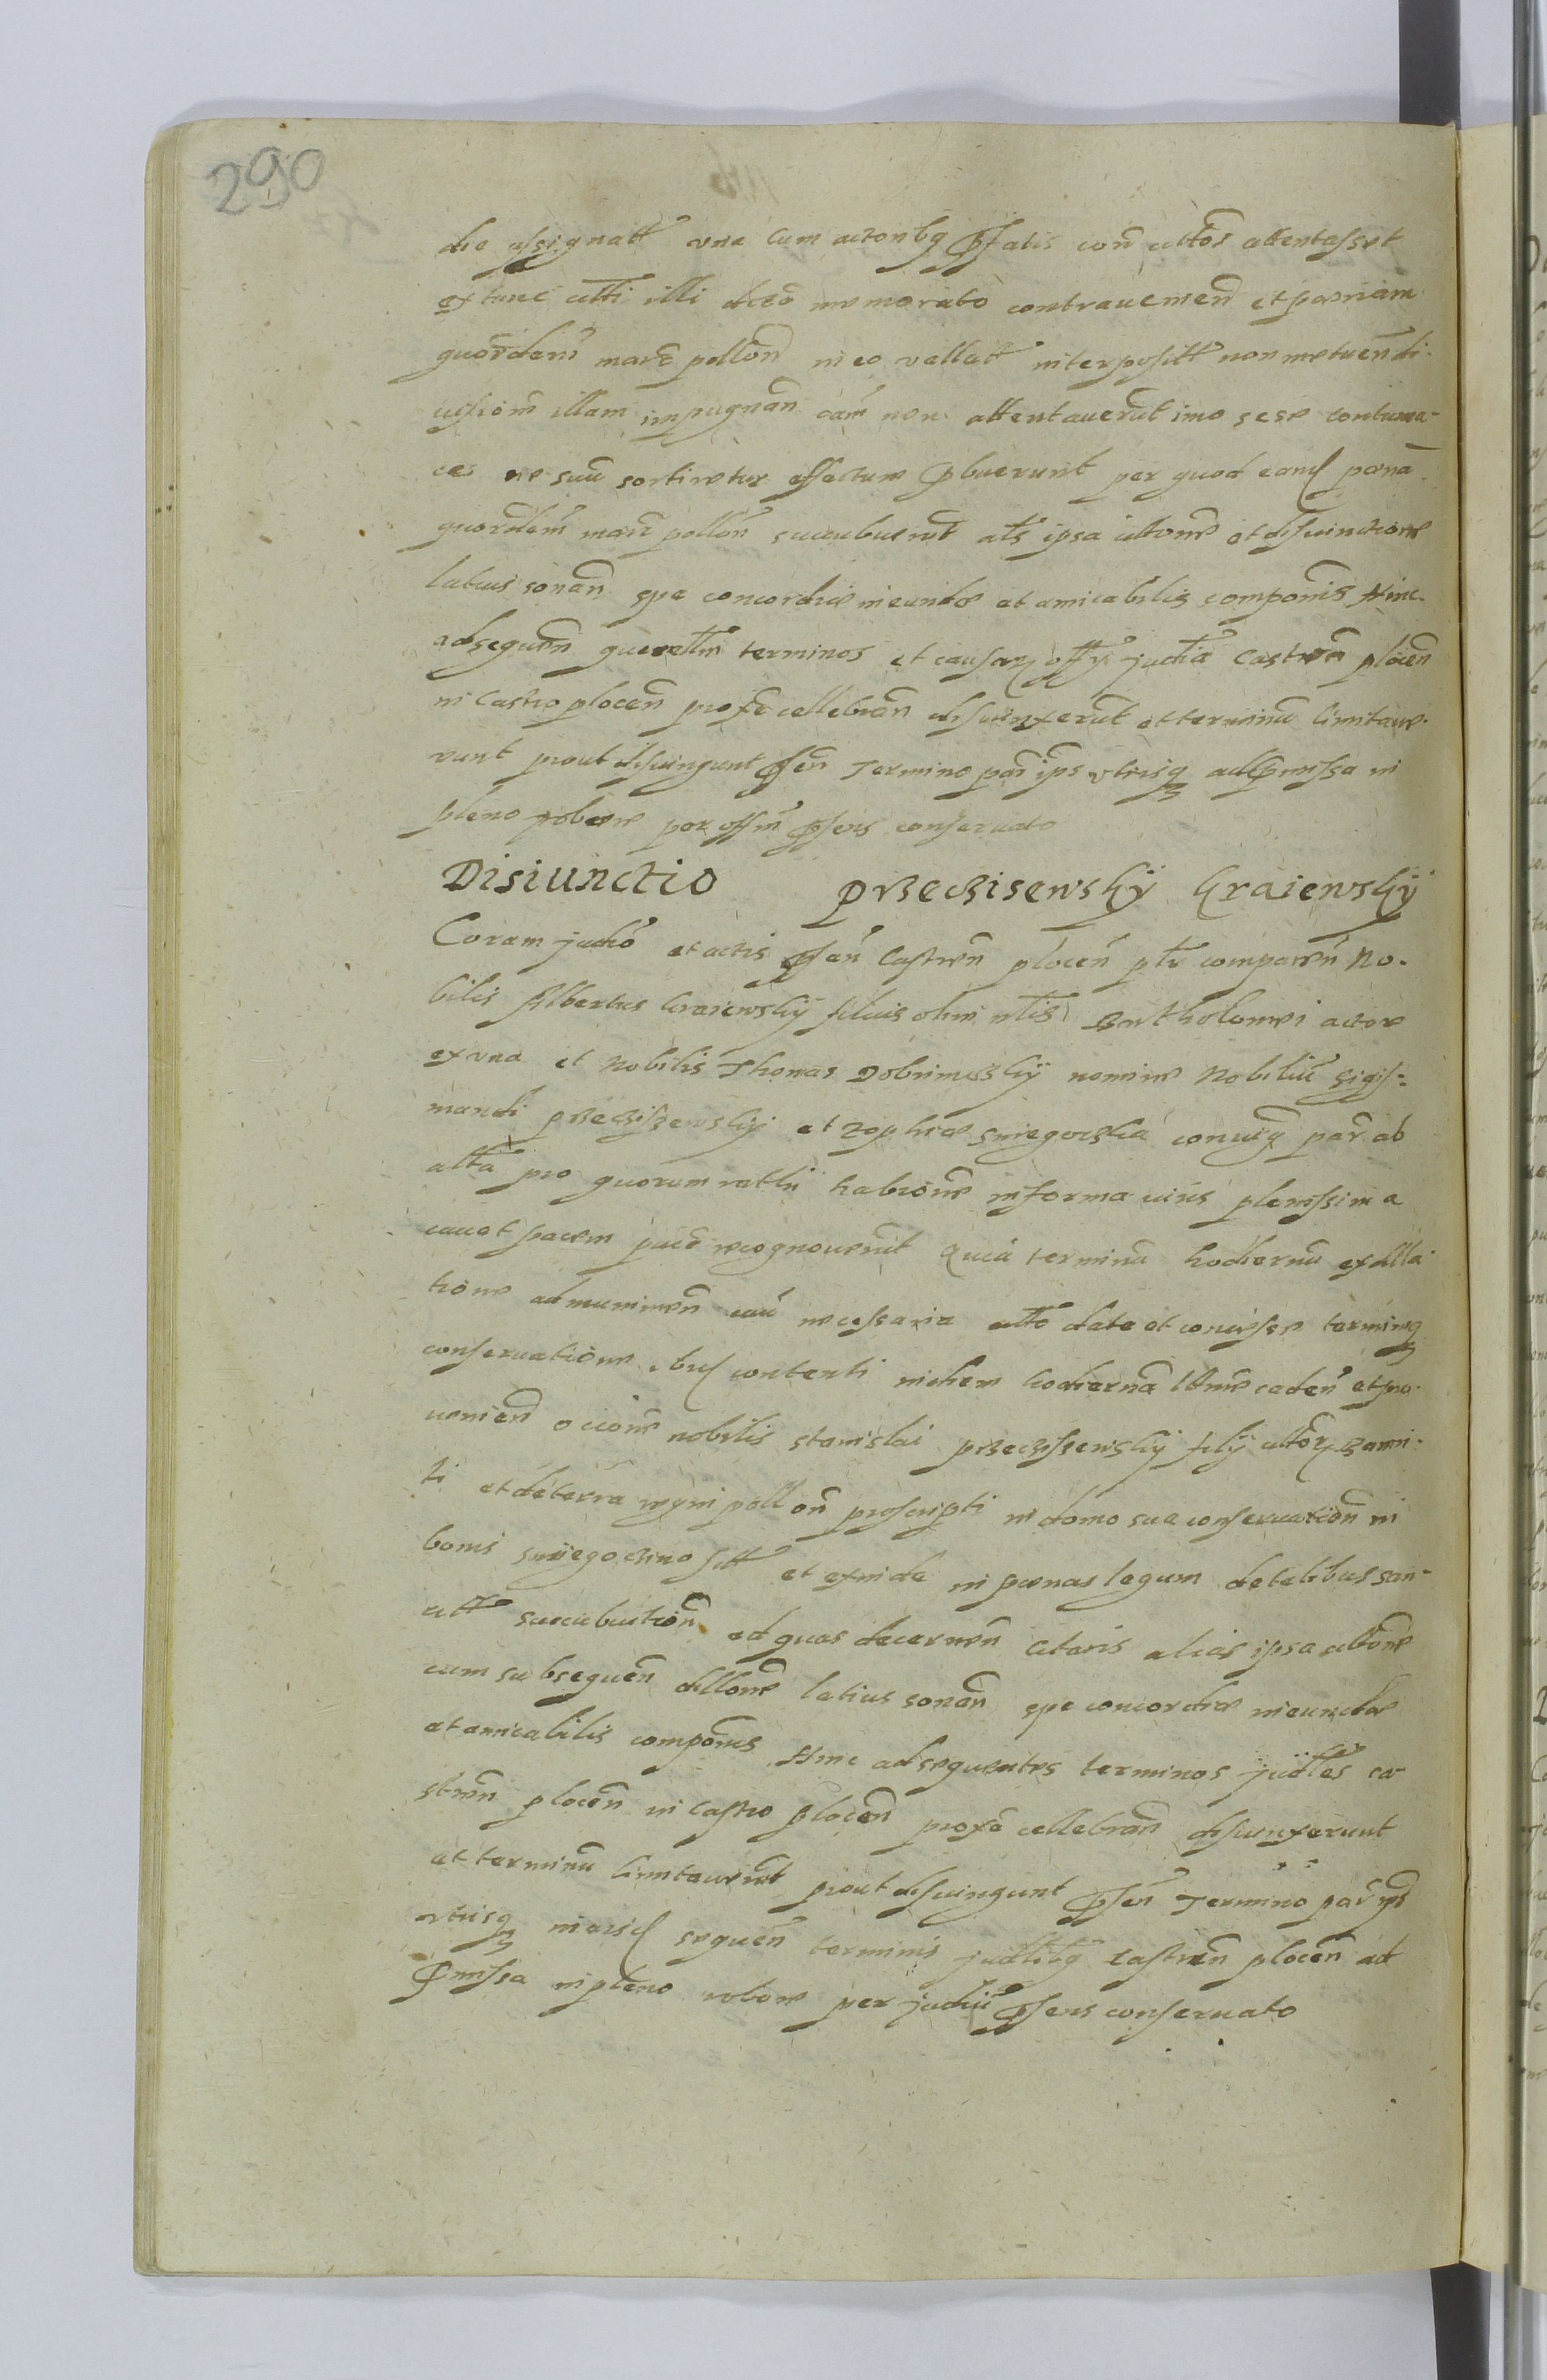 290
die assignatt una cum actoribq pfatis con citatos attentasset
extunc citati illi dicto memorato contravenien et poenam
quordem marc pollon in eo vallatt interpositt non metuen di-
uisionem illam impugnan eam non attentauerut imo sese contuma-
ces ne suu sortiretur effectum pbuerunt per quod eand poena
quordem marc pollon succubuerut als ipsa citatione et disiunctione
latius sonan spe concordiae ineundae et amicabilis componis Hinc
ad sequen querellm terminos et causar offy judicia castren plocen
in Castro plocen proxe cellebran disiunxerut et terminu limitaue-
runt prout disiungunt psen Termino par ips utrisq ad pmissa in
pleno robore per offm psens conseruato
Disiunctio Przeczisewskÿ Kraiewskÿ
Coram judio et actis psen Castren plocen ptr comparen No-
bilis Albertus Kraiewskÿ filius olim nlis Bartholomei actor
ex una et Nobilis Thomas Dobrimskÿ nomine Nobiliu Sigis-
mundi Przeczisewskÿ et Zophiae Sniegocka coniug par ab
altra pro quorum rathi habitione in forma iuris plenissima
cauet parem juic recognouerut Quia terminu hodiernu ex dila-
tione ad munimen cau necessaria citato data et concesse terminq
conseruatione bus contenti in diem hodierna litime caden et pro-
uenien occione nobilis Stanislai Przeczissewskÿ filÿ citator banni-
ti et de terra regni pollon proscripti in domo sua conseruation in
bonis Sniegoczino sitt et exinde in poenas legum de talibus san-
citt succubuition ad quas decernen citatis alias ipsa citatione
cum subsequen dillone latius sonan spe concordiae ineundae
et amicabilis componis Hinc ad sequentes terminos judles ca-
stren plocen in Castro plocen proxe cellebran disiunxerunt
et terminu limitauerut prout disiungunt psen Termino par ips
utrisq in eisd sequen terminis judlibq castren plocen ad
pmissa in pleno robore per judiu psens conseruato